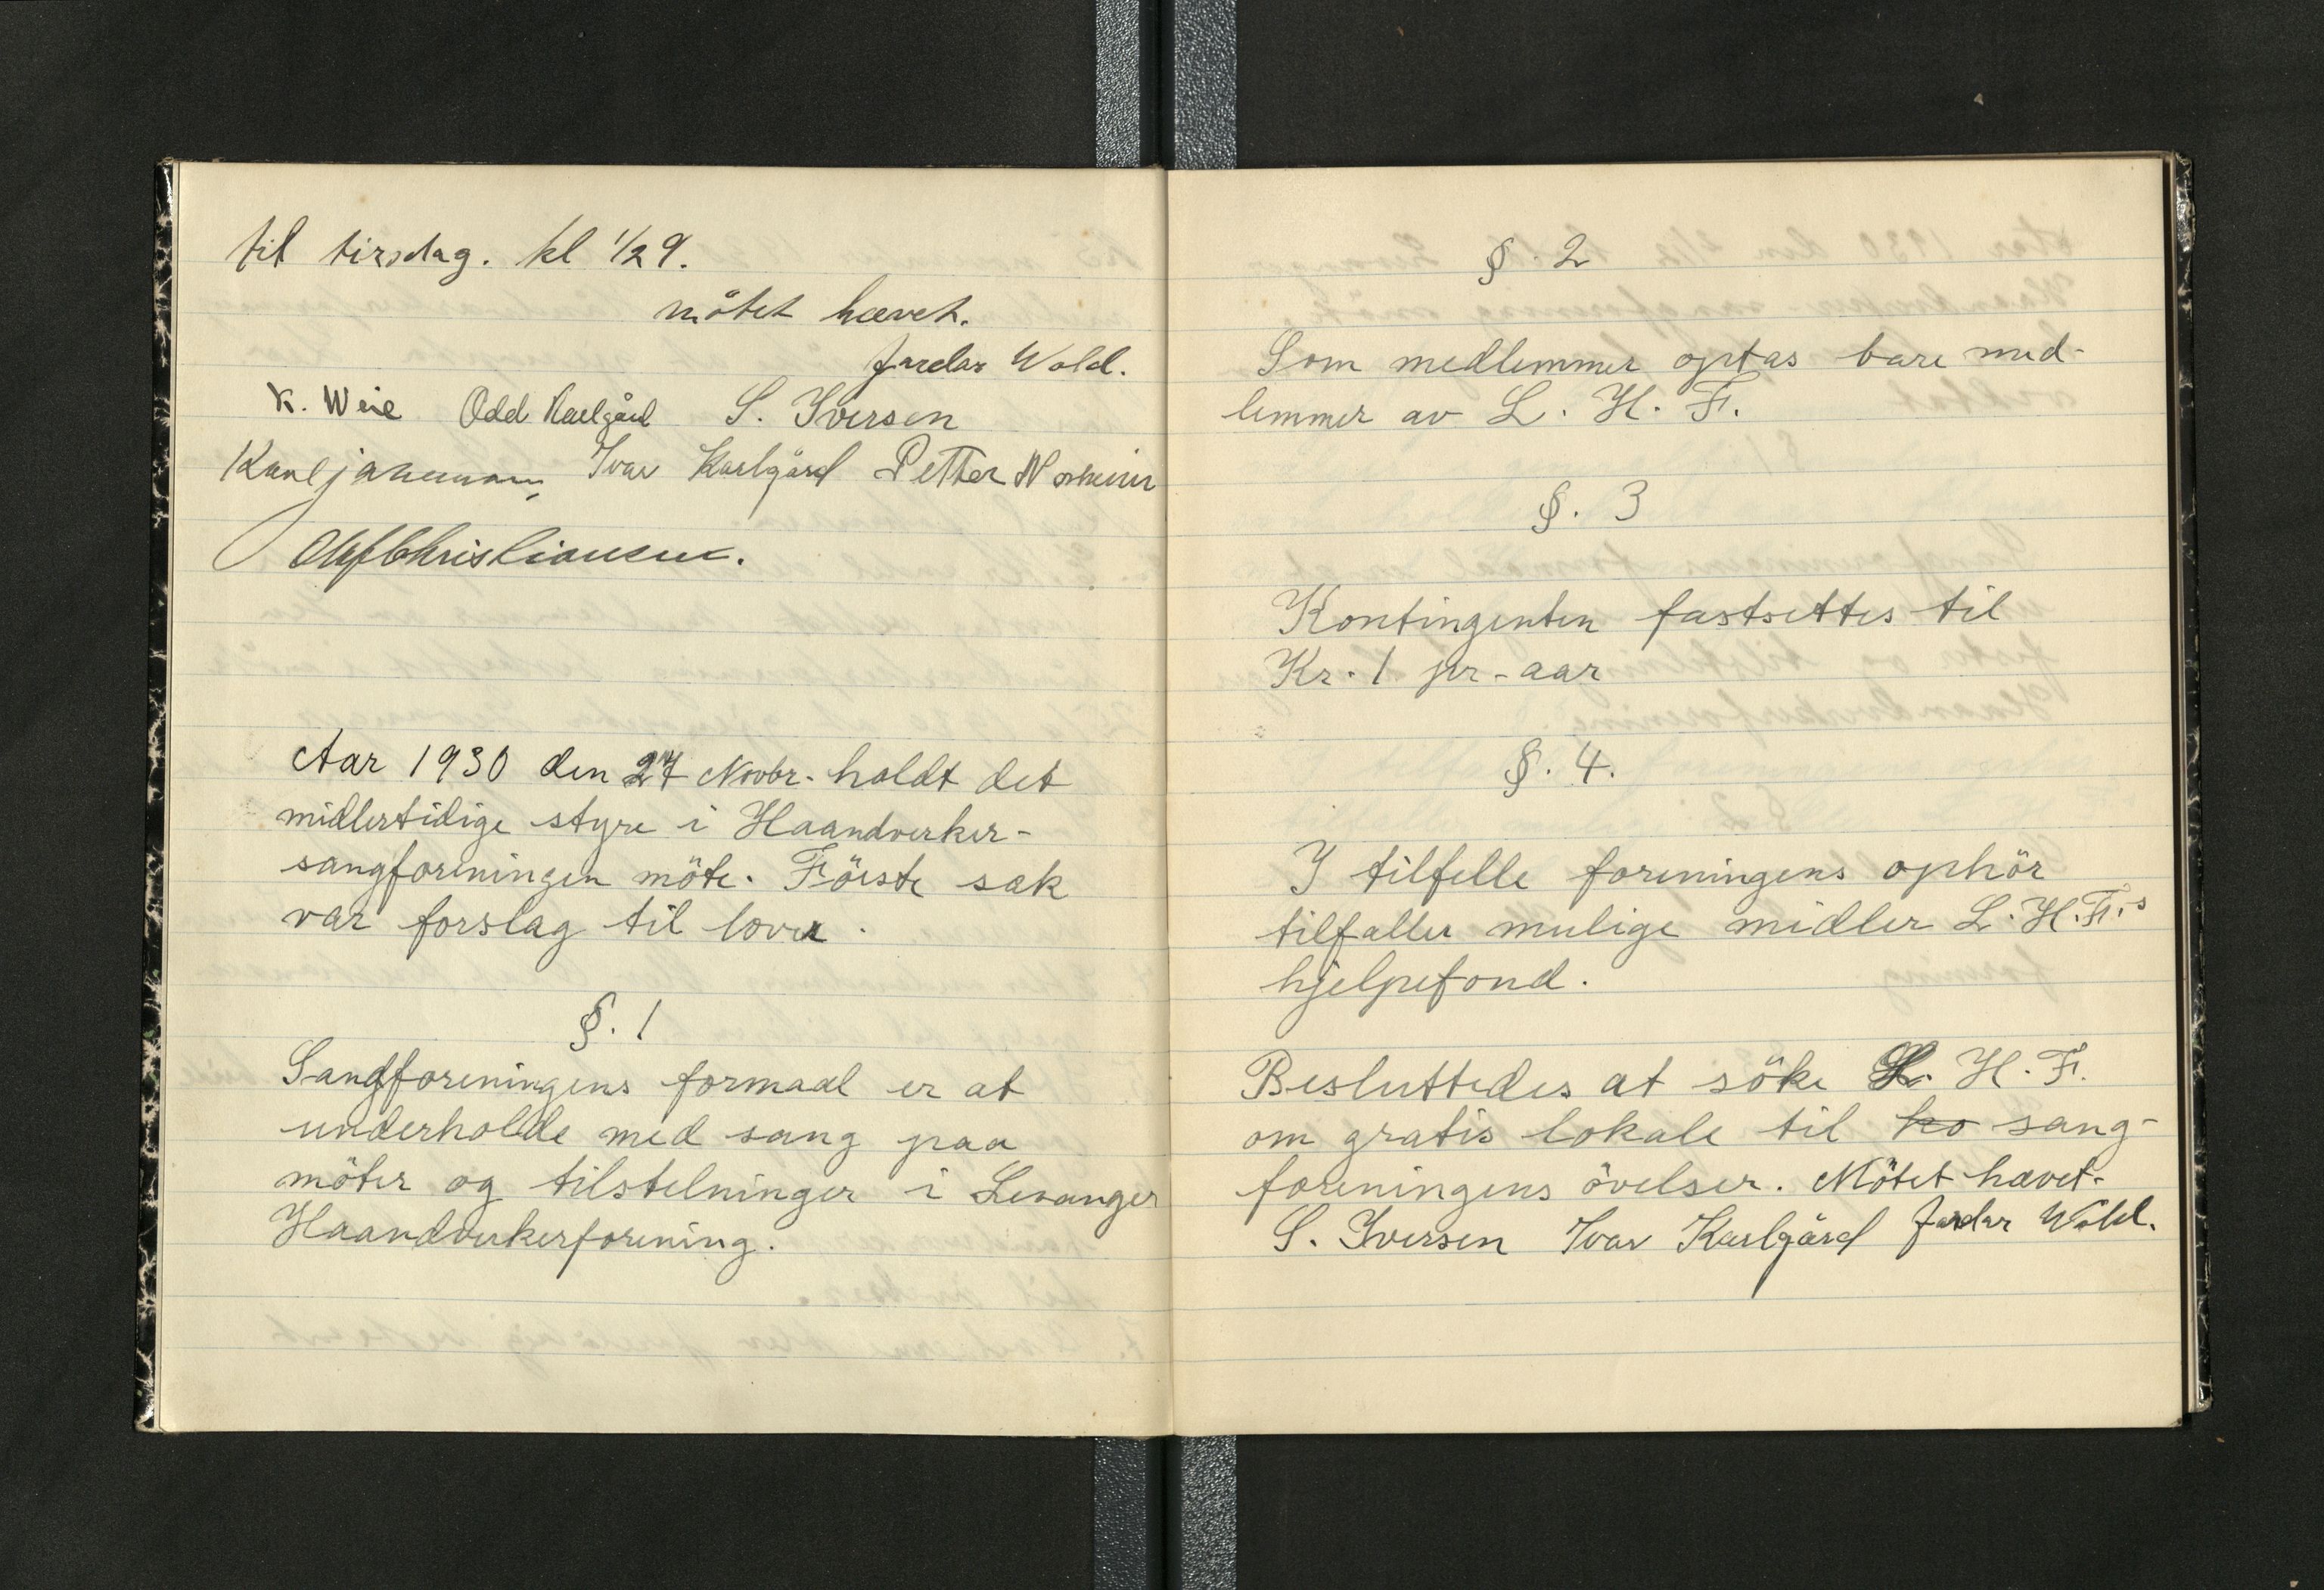 til tirsdag. kl 1/2 9.
mötet hævet.
Jardar Wold.
K. Weie Odd Karlgård S. Iversen
Karl Ivar Karlgård Petter
Olaf Christiansen.
Aar 1930 den 27 Novbr. holdt det
midlertidige styre i Haandverker-
sangforeningen möte. Förste sak
var forslag til lover.
§. 1
Sangforeningens formaal er at
underholde med sang paa
möter og tilstelninger i Levanger
Haandverkerforening.
§. 2
Som medlemmer optas bare med-
lemmer av L. H. F.
§. 3
Kontingenten fastsettes til
Kr. 1 pr-aar
§. 4.
I tilfelle foreningens ophör
tilfaller mulige midler L. H. F.s
hjelpefond.
Besluttedes at söke L. H. F.
om gratis lokale til ko sang-
foreningens övelser. Mötet hævet.
S. Iversen Ivar Karlgård Jardar Wold.